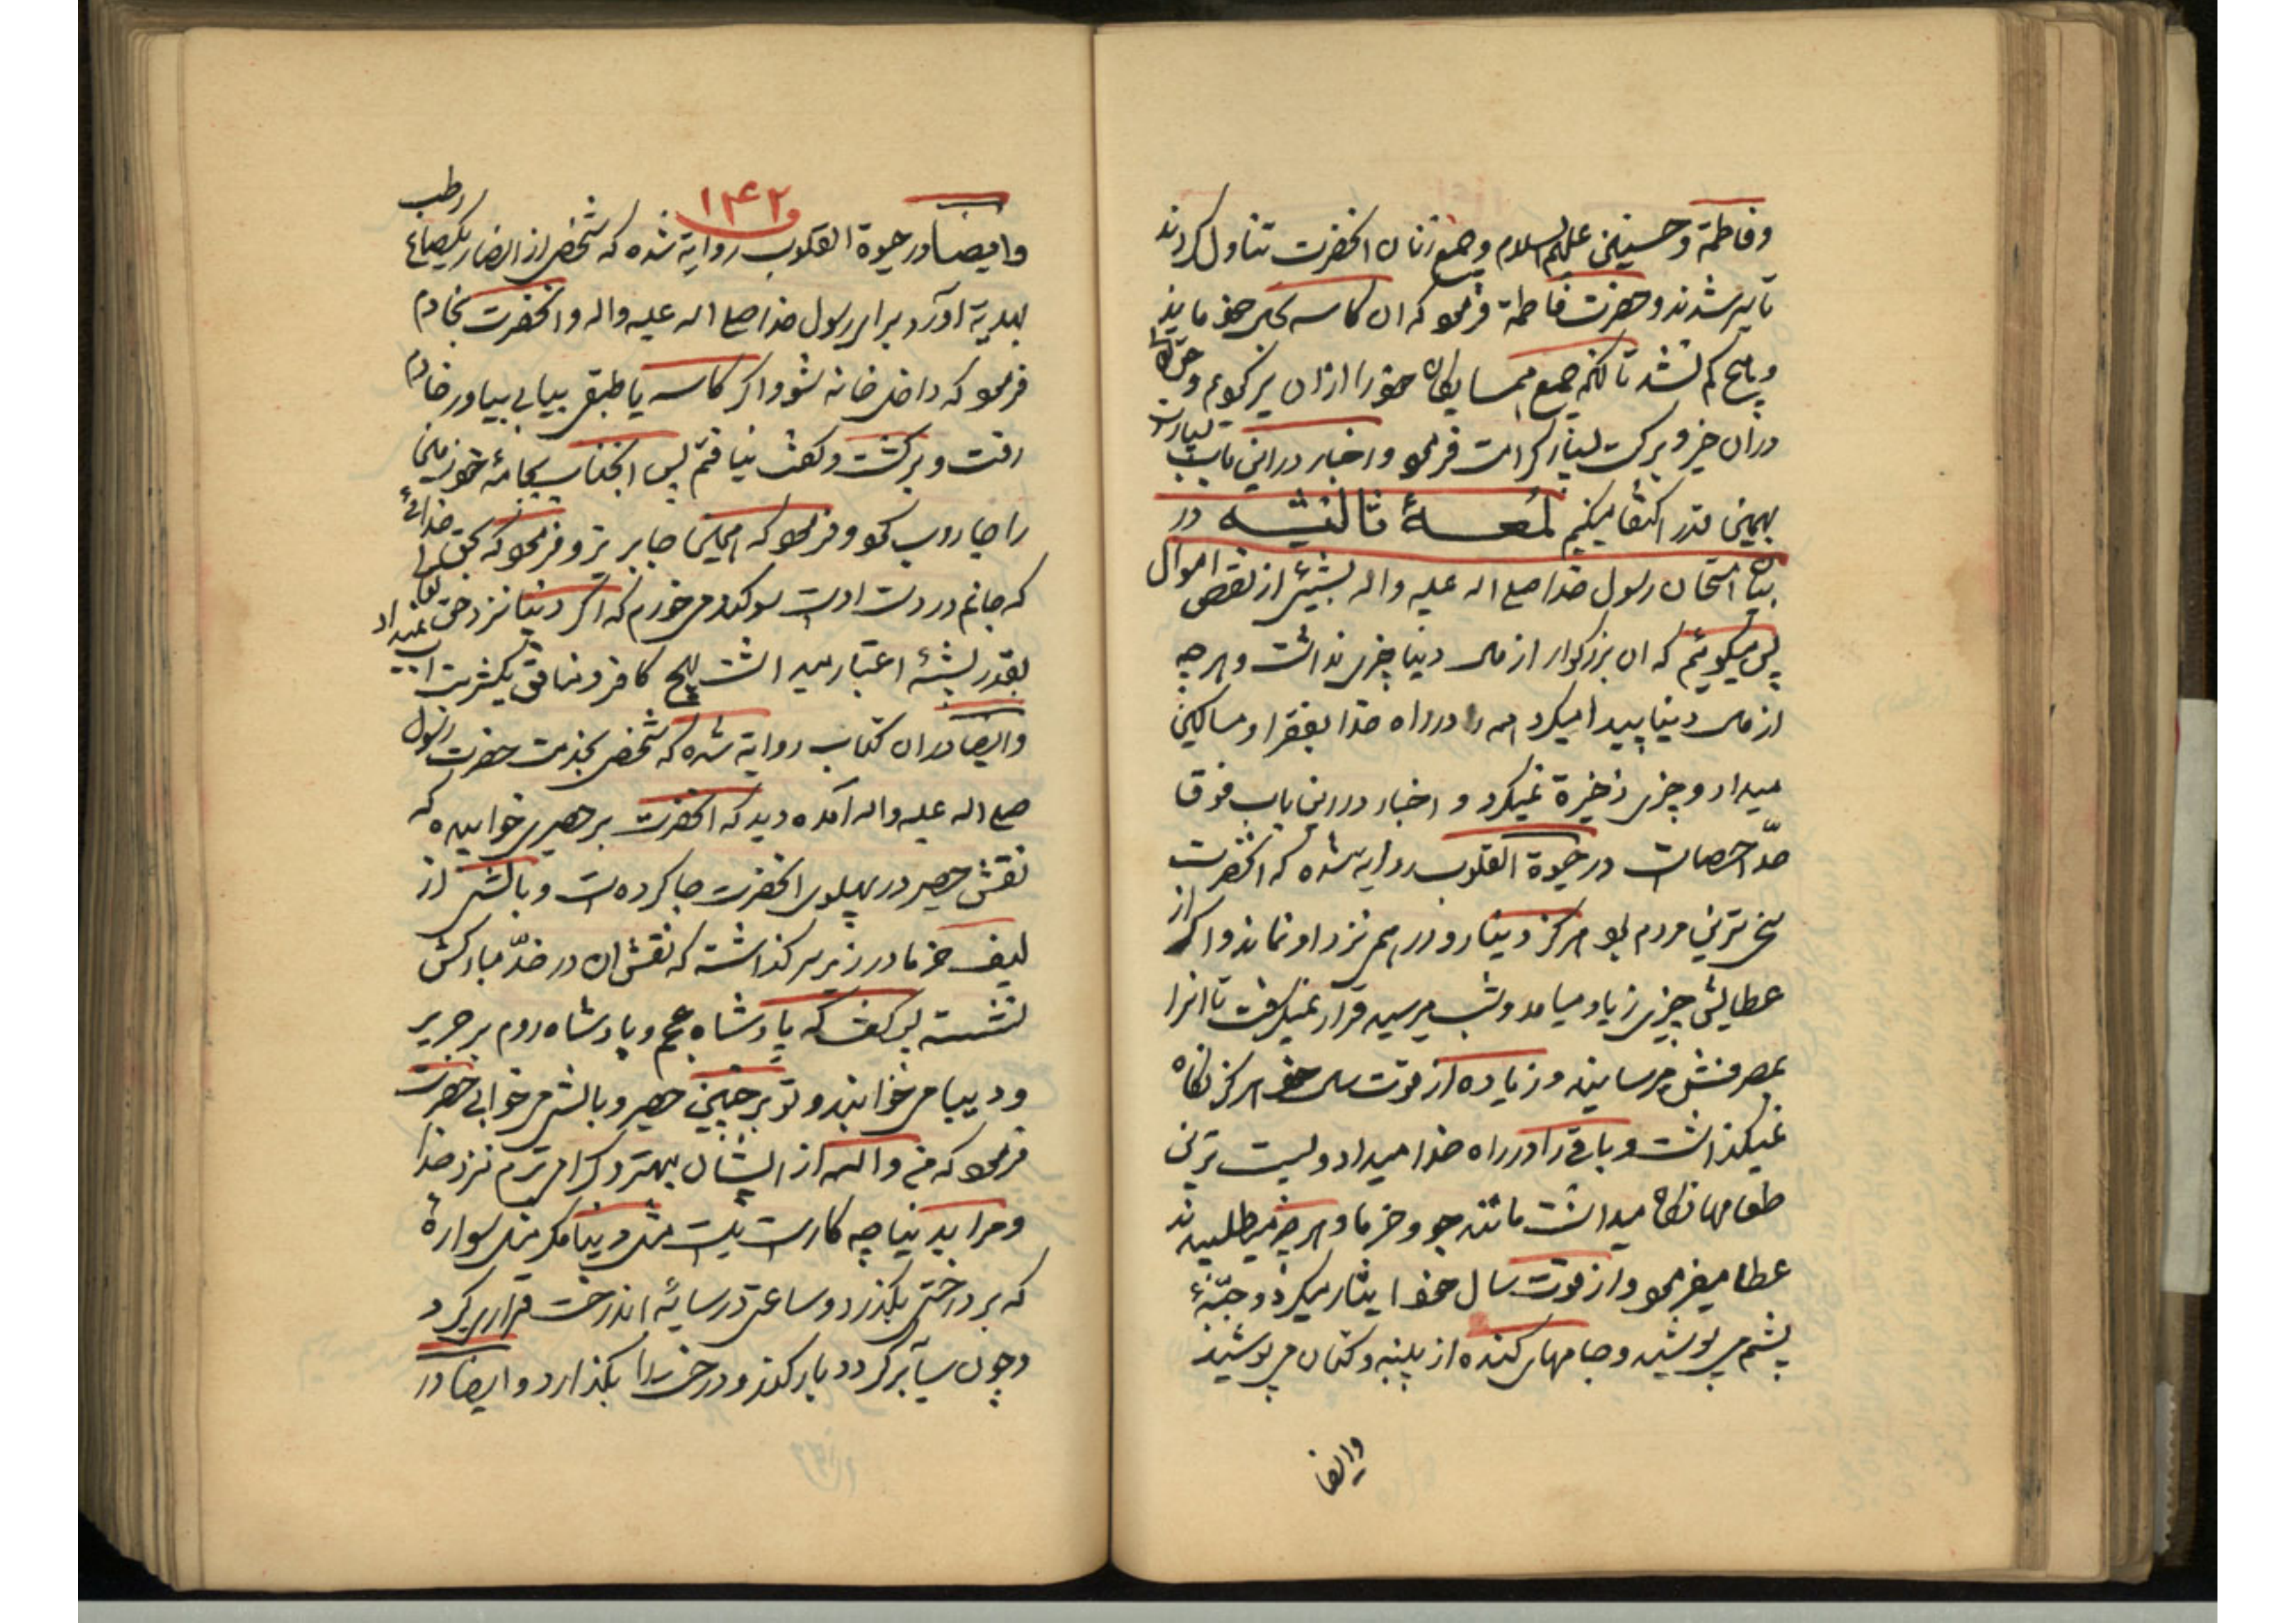 وفاطمة وحسنین علیهم السلام وجمیع زنان انحضرت تناول کردند
تا سیر شدند وحضرت فاطمة فرمود که ان کاسه بحال خود ماند
وهیچ کم نشد تا انکه جمیع همسایکان خود را ازان پر کردم و حقتعالی
دران خیر وبرکت بسیار کرامت فرمود واخبار دراین باب بسیارست
بهمین قدر اکتفا میکنیم لمعهٔ ثالثه در
بیان امتحان رسول خدا صلی اله علیه واله بشیئی از نقص اموال
پس میکوئیم که ان بزرکوار از مال دنیا چیزی نداشت وهر چه
از مال دنیا پیدا میکرد همه را در راه خدا بفقرا ومساکین
میداد وچیزی ذخیرة نمیکرد و اخبار دراین باب فوق
حدّ احصاست در حیوة القلوب روایه شده که انحضرت
سخی ترین مردم بود هرکز دینار ودرهم نزد او نماند واکر از
عطایش چیزی زیاد میامد وشب میرسید قرار نمیکرفت تا انرا
بمصرفش میرسانید وزیاده از قوت سال خود هرکز نکاه
نمیکذاشت وباقی را در راه خدا میداد وپست ترین
طعامها نکاه میداشت مانند جو وخرما وهر چه میطلبیدند
عطا میفرمود واز قوت سال خود ایثار میکرد وجبّهٔ
پشم می پوشید وجامهای کنده از پنبه وکتان می پوشید
وایضا
۱۴۲
وایضا در حیوة القلوب روایة شده که شخصی از انصار یکصاع رطب
بهدیة اورد برای رسول خدا صلی اله علیه واله وانحضرت بخادم
فرمود که داخل خانه شو واکر کاسه یا طبقی بیابی بیاور خادم
رفت وبرکشت وکفت نیافتم پس انجناب بجامهٔ خود زمین
را جاروب نمود وفرمود که اینجا بریز وفرمود که بحق خدائی
که جانم در دست اوست سوکند می خورم که اکر دنیا نزد حق تعالی
بقدر پشهٔ اعتبار میداشت هیچ کافر ومنافق یکشربت اب نمیداد
وایضا دران کتاب روایة شده که شخصی بخدمت حضرت رسول
صلی اله علیه واله آمده دید که انحضرت بر حصیری خوابیده که
نقش حصیر در پهلوی انحضرت جا کرده است وبالشی از
لیف خرما در زیر سر کذاشته که نقش ان در خدّ مبارکش
نشسته پس کفت که پادشاه عجم وپادشاه روم بر حریر
ودیبا می خوابند وتو بر چنین حصیر وبالش می خوابی حضرت
فرمود که من واله از ایشان بهتر وکرامی ترم نزد خدا
ومرا بدنیا چه کارست نیست مثل دنیا مکر مثل سوارهٔ
که بر درختی بکذرد وساعتی در سایهٔ اندرخت قرار کیرد
وچون سایه برکردد بار کند ودرخت را بکذارد وایضا در